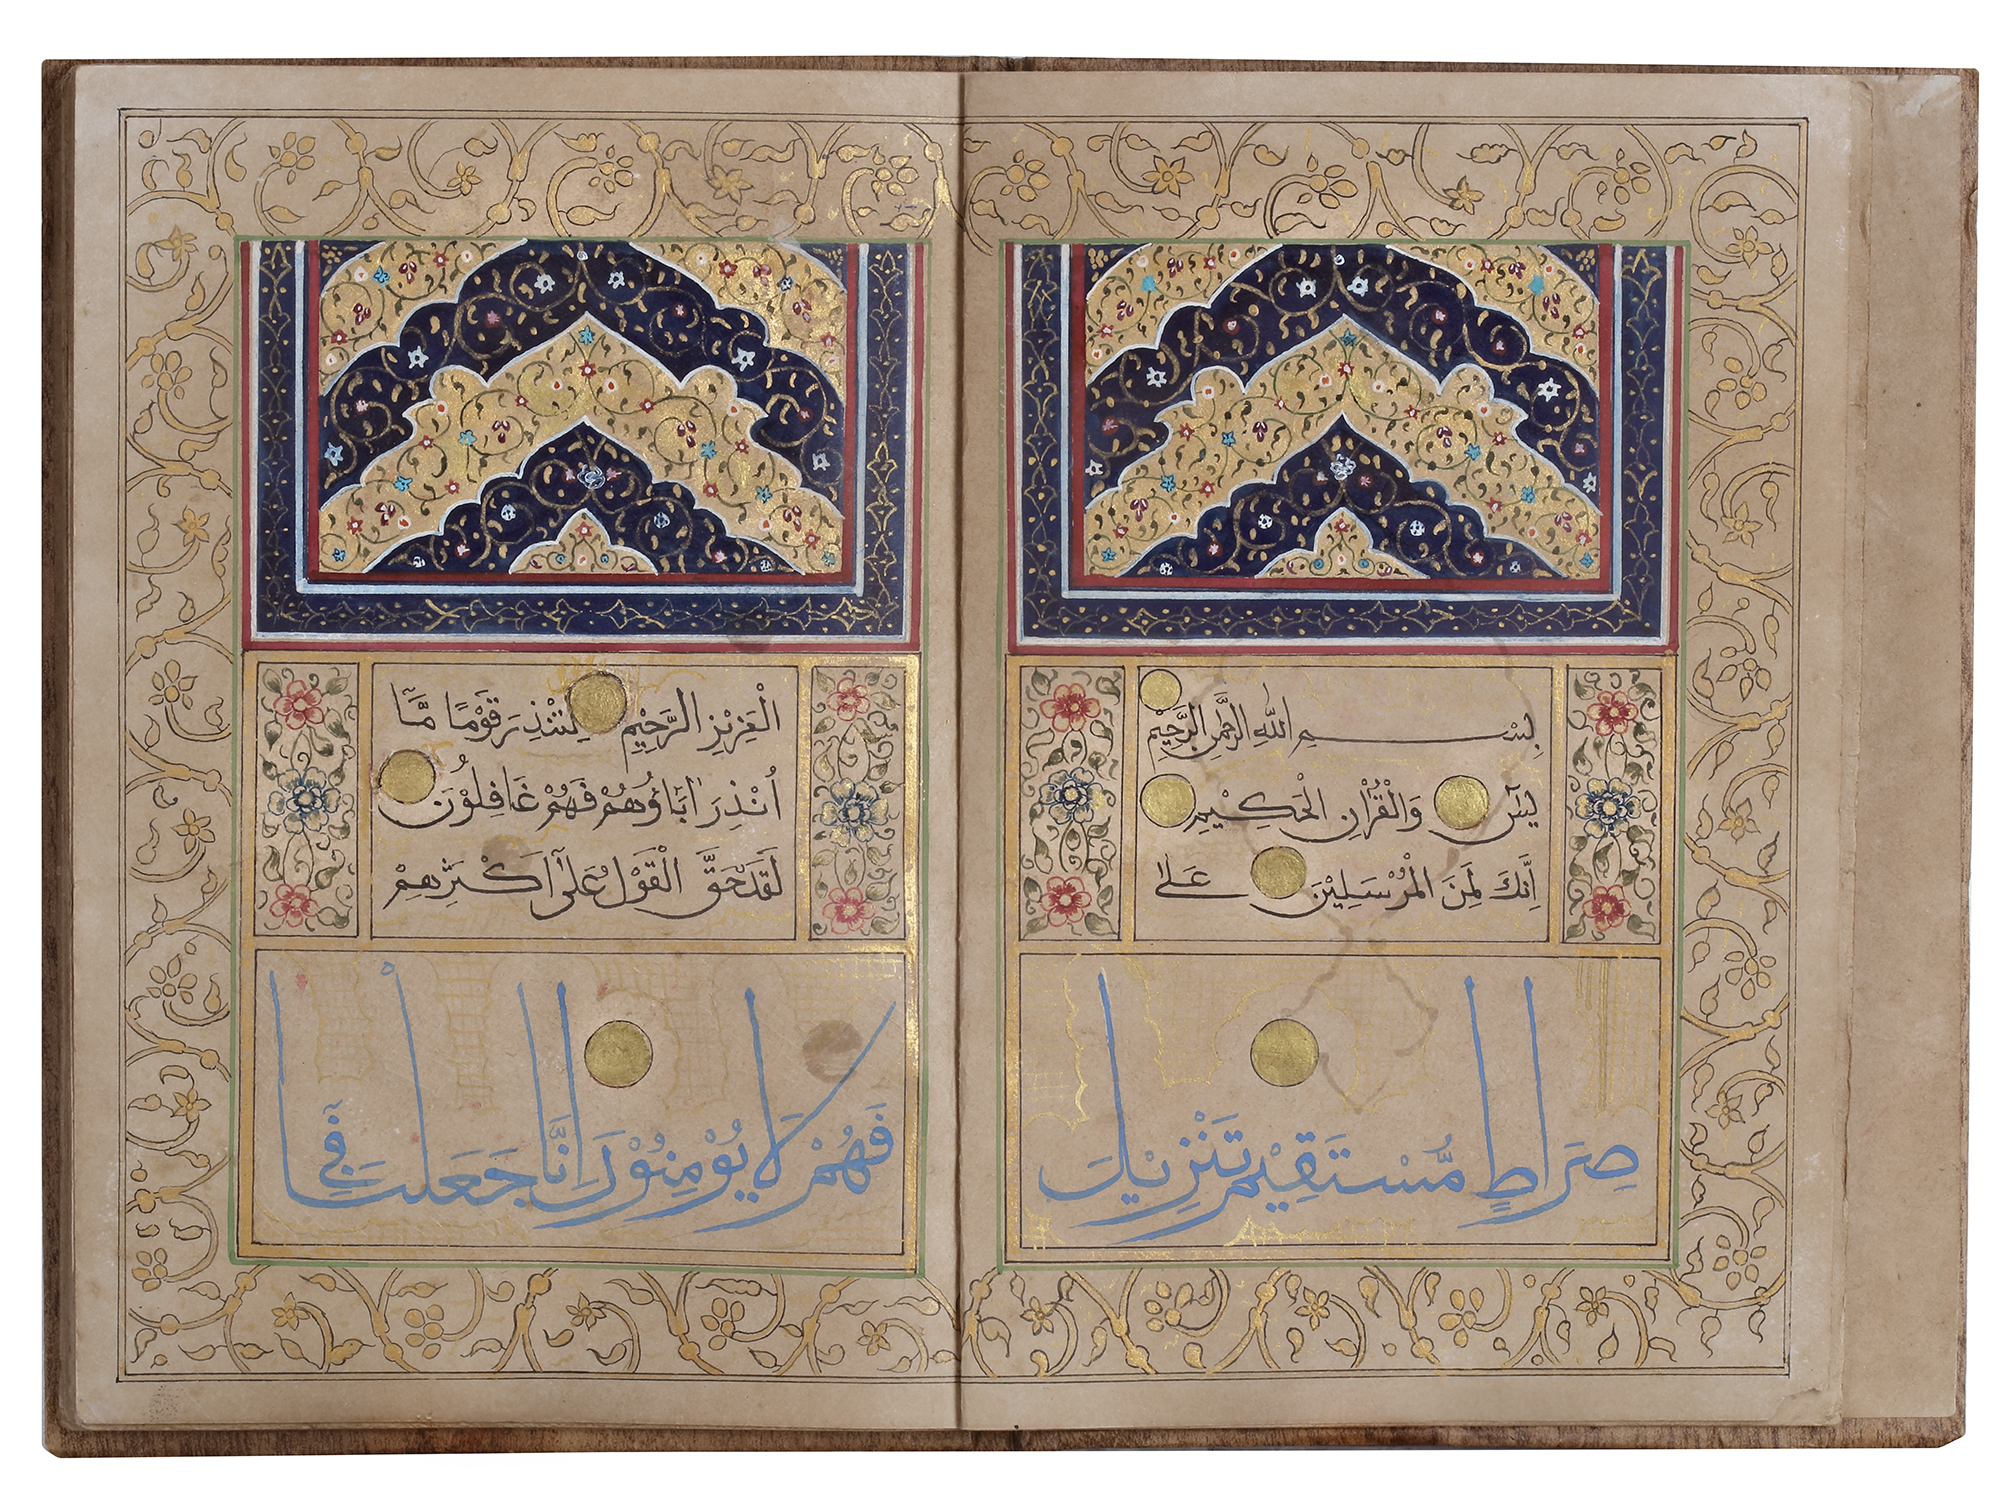 بِسْــــمِ اللّٰهِ الرَّحْمٰنِ الرَّحِيْمِ
يٰسٓ وَالْقُرْاٰنِ الْحَكِيْمِ
اِنَّكَ لَمِنَ الْمُرْسَلِيْنَ عَلٰى
صِرَاطٍ مُّسْتَقِيْمٍ تَنْزِيْلَ
الْعَزِيْزِ الرَّحِيْمِ لِتُنْذِرَ قَوْمًا مَّآ
اُنْذِرَ اٰبَاؤُهُمْ فَهُمْ غَافِلُوْنَ
لَقَدْ حَقَّ الْقَوْلُ عَلٰٓى اَكْثَرِهِمْ
فَهُمْ لَا يُوْمِنُوْنَ اِنَّا جَعَلْنَا فِيْٓ